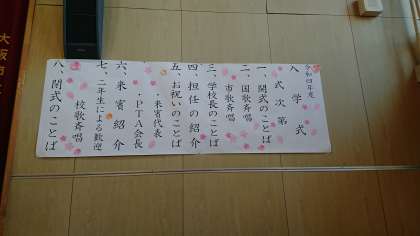 令和四年度
入学式
式次第
一、開式のことば
二、国歌斉唱
市歌斉唱
三、学校長のことば
四、担任の紹介
五、お祝いのことば
・来賓代表
・PTA会長
六、来賓紹介
七、二年生による歓迎
校歌斉唱
八、閉式のことば
大阪市